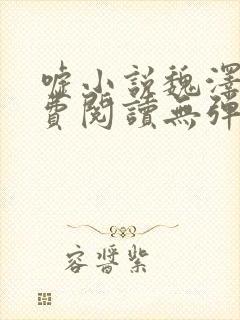 嘘小説魏澤
費閱讀無彈
容晉紫